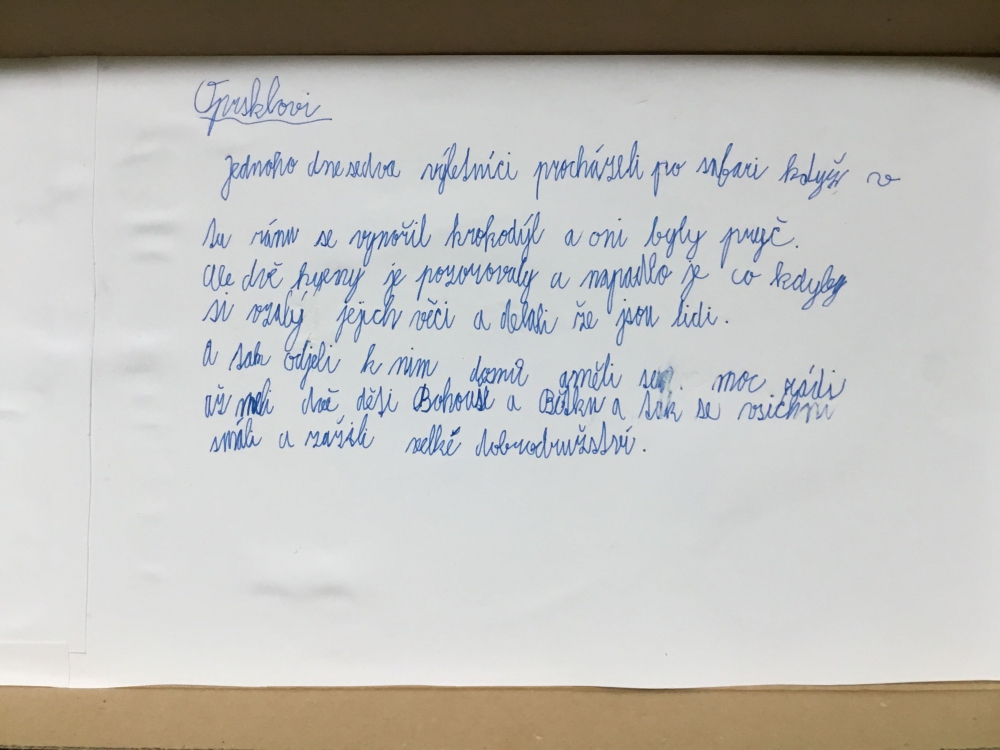 Oprsklovi
Jednoho dne se dva výletníci procházeli po safari když v
tu ránu se vynořil krokodýl a oni byly pryč.
Ale dvě hyeny je pozorovaly a napadlo je co kdyby
si vzaly jejich věci a delali že jsou lidi.
A tak odjeli k nim domů a měli se moc rádi
až meli dvě děti Bohouše a Bětku a tak se vsichni
smáli a zažili velké dobrodružství.